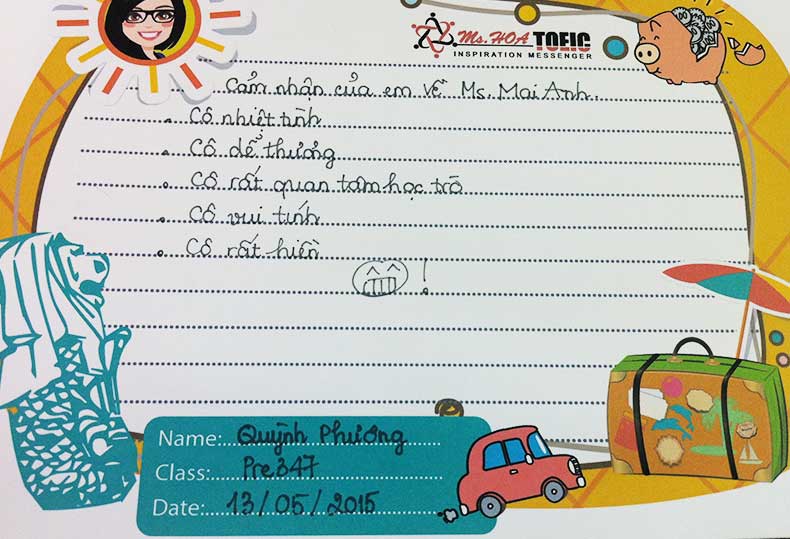 Ms. HOA TOEIC
INSPIRATION MESSENGER
Cảm nhận của em về Ms. Mai Anh.
• Cô nhiệt tình
• Cô dể thương
• Cô rất quan tâm học trò
• Cô vui tính
• Cô rất hiền
!
Name: Quỳnh Phương
Class: Pre347
Date: 13/05/2015